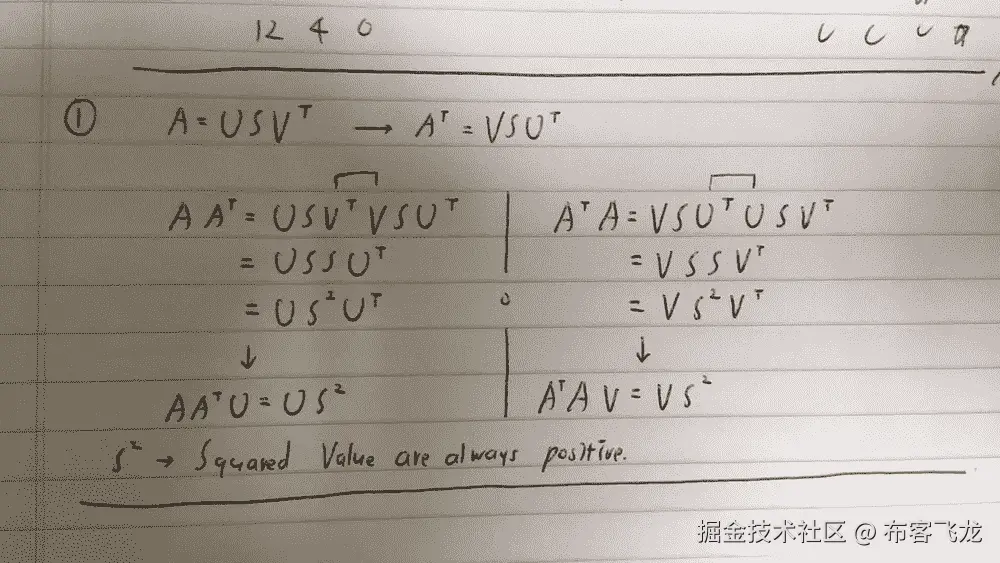 12 4 0
① A = USVᵀ → Aᵀ = VSUᵀ
A Aᵀ = USVᵀVSUᵀ
= USSUᵀ
= US²Uᵀ
↓
AAᵀU = US²
AᵀA = VSUᵀUSVᵀ
= VSSVᵀ
= VS²Vᵀ
↓
AᵀAV = VS²
S² → Squared Value are always positive.
掘金技术社区 @ 布客飞龙